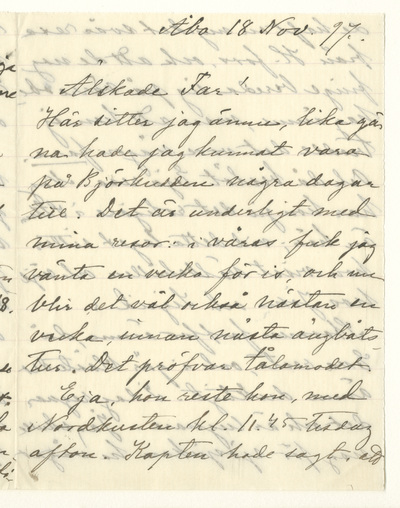 Åbo 18 Nov 97.
Älskade Far!
Här sitter jag ännu, lika gär-
na hade jag kunnat vara
på Björkudden några dagar
till. Det är underligt med
mina resor: i våras fick jag
vänta en vecka för is, och nu
blir det väl också nästan en
vecka, innan nästa ångbåts
tur. Det pröfvar tålamodet.
Eja, hon reste hon, med
Nordkusten kl. 11.45 tisdag
afton. Kapten hade sagt att